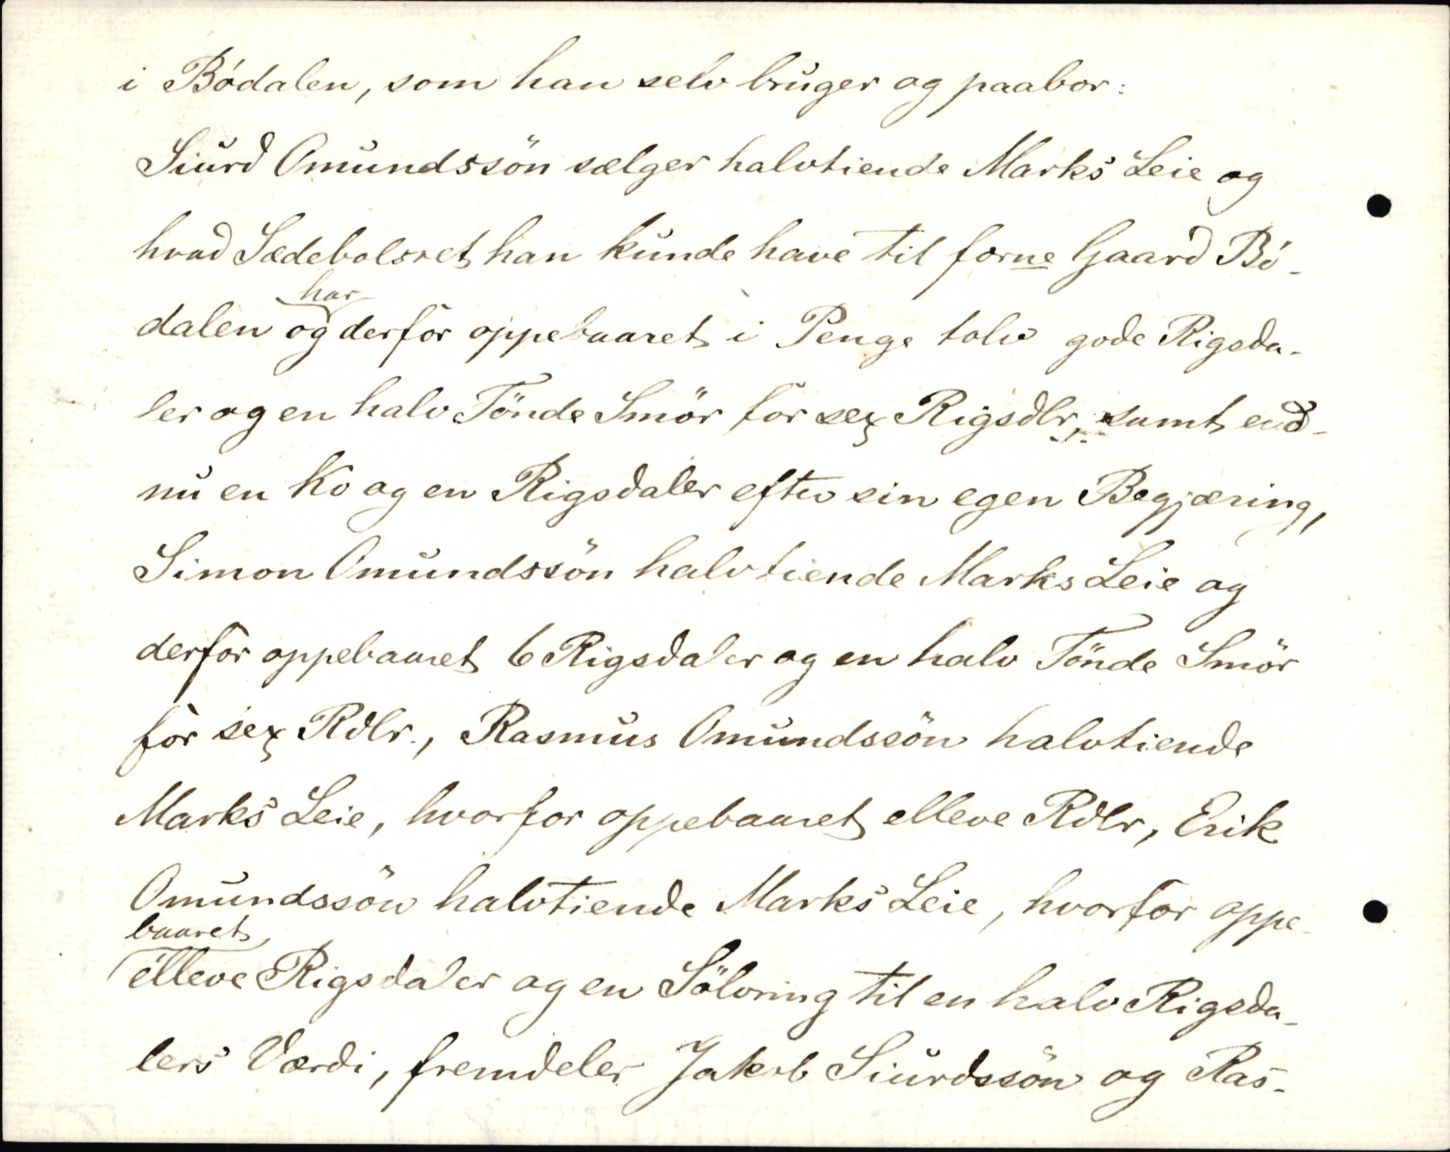 i Bödalen, som han selv bruger og paabor:
Siurd Omundssön sælger halvtiende Marks Leie og
hvad Sædebolsret han kunde have til forne Gaard Bö-
har
dalen og derfor oppebaaret i Penge tolv gode Rigsda-
ler og en halv Tönde Smör for sex Rigsdlr, samt end-
nu en Ko og en Rigsdaler efter sin egen Begjæring,
Simon Omundssön halvtiende Marks Leie og
derfor oppebaaret 6 Rigsdaler og en halv Tönde Smör
for sex Rdlr., Rasmus Omundssön halvtiende
Marks Leie, hvorfor oppebaaret elleve Rdlr, Erik
Omundssön halvtiende Marks Leie, hvorfor oppe-
baaret
elleve Rigsdaler og en Sölvring til en halv Rigsda-
lers Værdi, fremdeles Jakob Siurdssön og Ras-